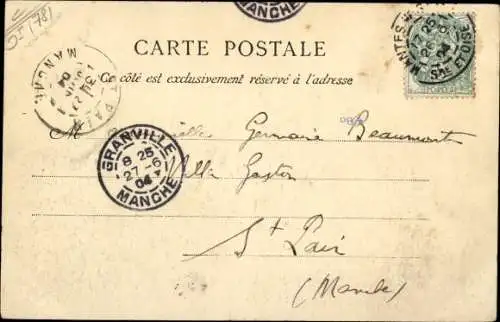 MANCHE
CARTE POSTALE
Ce côté est exclusivement réservé à l'adresse
MANTES
25
04
SNE ET OISE
M Germaine Beaumont
GRANVILLE
8 25
27-6
04
MANCHE
Villa Gaston
St Pair
(Manche)